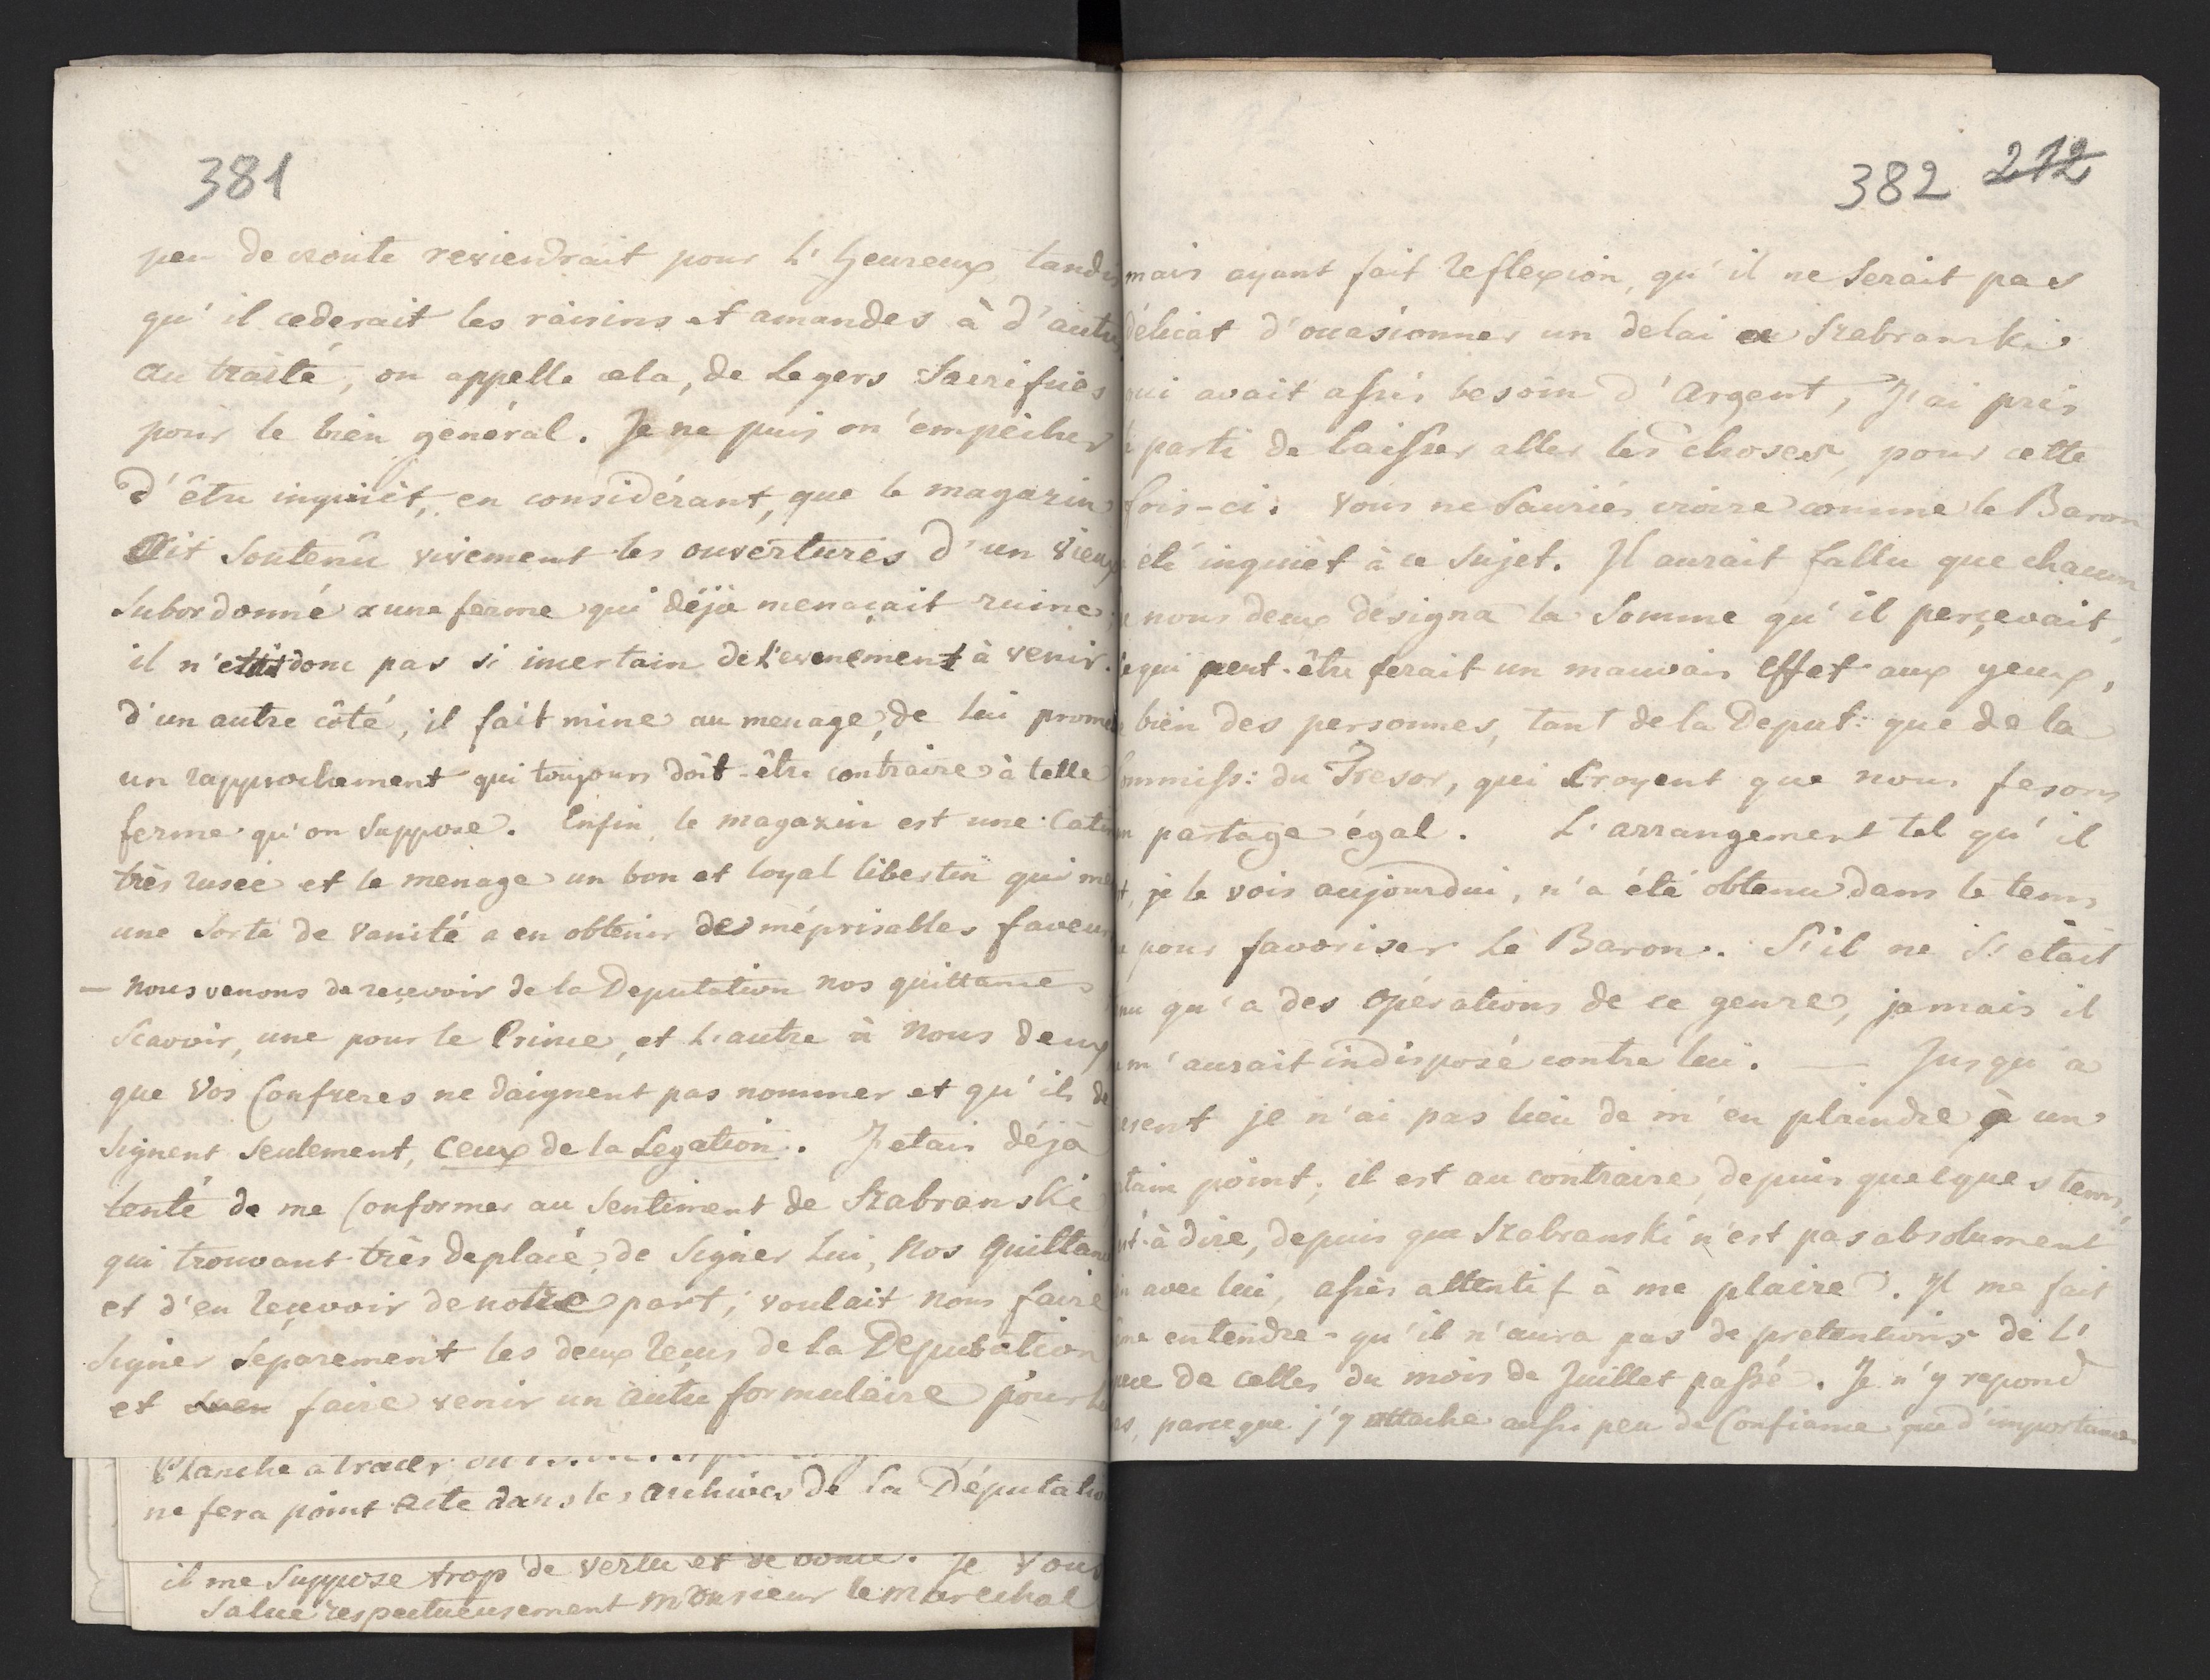 381
peu de route reviendrait pour L'heureux tandis
qu'il cederait les raisins et amandes à d'autres
au traité, on appelle cela, de Legers Sacrifices
pour le bien général. Je ne puis m'empêcher
d'être inquiet, en considérant, que le magazin
ait Soutenû vivement les ouvertures d'un vieux
Subordonné a une ferme qui déjà menaçait ruine;
il n' donc pas si incertain de l'evenement à venir.
d'un autre côté, il fait mine au menage, de lui
un rapprochement qui toujours doit-être contraire à telle
ferme qu'on Suppose. Enfin, le magazin est une
très rusée et le menage un bon et loyal libertin qui
une Sorte de vanité a en obtenir des méprisables faveurs
— Nous venons de reçevoir de la Deputation nos quittances
Scavoir, une pour le Prince, et L'autre à Nous deux
que Vos Confreres ne daignent pas nommer et qu'ils de
signent seulement, ceux de la Legation. J'etais déjà
tenté de me Conformer au Sentiment de Szabranski
qui trouvant très deplacé, de Signer Lui, Nos quittances
et d'en reçevoir de notre part; voulait nous faire
signer séparement les deux reçus de la Deputation
et faire venir un autre formulaire pour
Planche a tracer
ne fera point acte dans les archives de la Députation
il me Suppose trop de vertu et de bonté. Je Vous
Salue respectueusement Monsieur le Marechal
382 212
mais ayant fait reflexion, qu'il ne Serait pas
délicat d'occasionner un delai a Szabranski
qui avait assés besoin d'Argent, J'ai pris
le parti de laisser aller les choses, pour cette
fois-ci. Vous ne Sauriés croire comme le Baron
a été inquièt à ce Sujet. Il aurait fallu que chacun
de nous deux désigna la Somme qu'il perçevait,
ce qui peut-être ferait un mauvais Effet aux yeux,
de bien des personnes, tant de la Deput: que de la
Commiss: du Tresor, qui Croyent que nous fesons
un partage égal. L'arrangement tel qu'il
est, je le vois aujourdui, n'a été obtenu dans le tems
que pour favoriser Le Baron. S'il ne S'était
tenu qu'a des Opérations de ce genre, jamais il
ne m'aurait indisposé contre lui. — Jusqu'a
present je n'ai pas lieu de m'en plaindre à un
certain point; il est au contraire, depuis quelques tems,
c'est-à dire, depuis que Szabranski n'est pas absolument
bien avec lui, assés attentif à me plaire. Il me fait
même entendre qu'il n'aura pas de pretentions de L'
espece de celles du mois de Juillet passé. Je n'y repond
pas, parceque j'y attache aussi peu de Confiance que d'importance